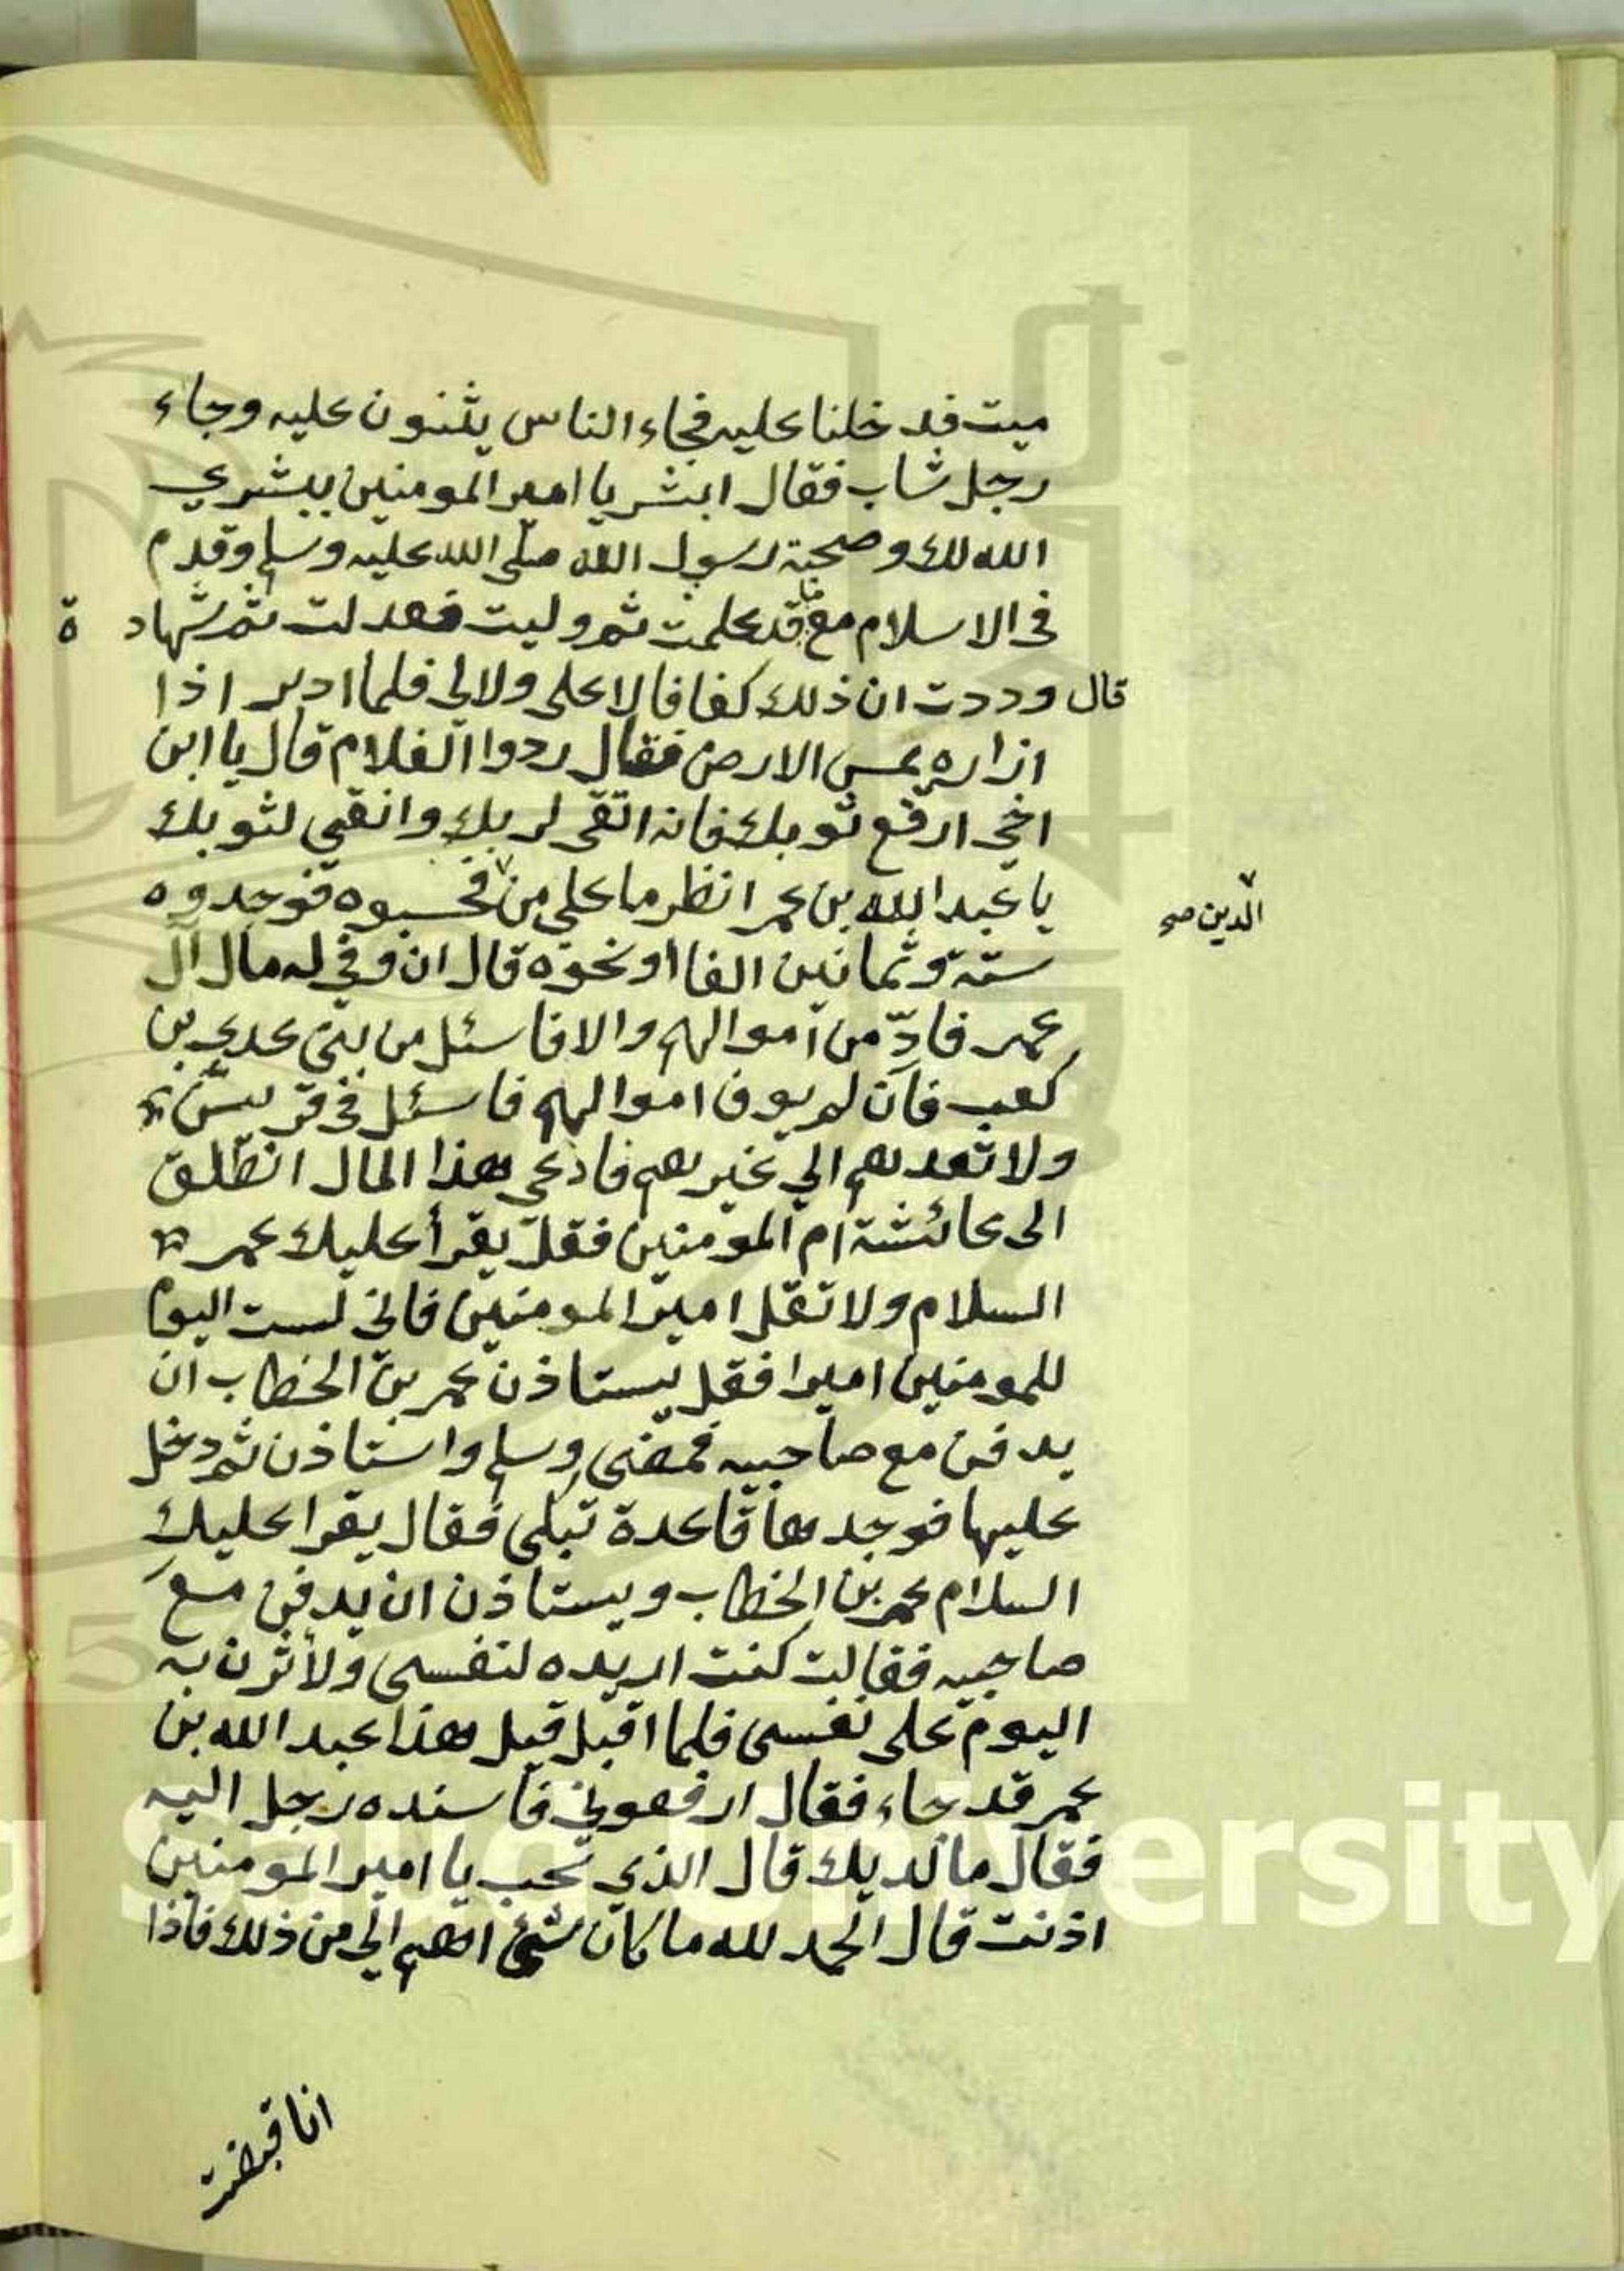 ميت فدخلنا عليه فجاء الناس يثنون عليه وجاء
رجل شاب فقال ابشر يا امير المومنين ببشري
الله لك وصحبة رسول الله صلى الله عليه وسلم وقدم
فى الاسلام مع ما قد علمت ثم وليت فعدلت ثم شهادة
قال وددت ان ذلك كفافا لا على ولا لى فلما ادبر اذا
ازاره يمس الارض فقال ردوا الغلام قال يا ابن
اخى ارفع ثوبك فانه اتقى لربك وانقى لثوبك
يا عبد الله بن عمر انظر ما على من فحسبوه فوجدوه
الدين صح
ستة وثمانين الفا او نحوه قال ان وفى له مال ال
عمر فادّ من اموالهم والا فاسئل من بنى عدي بن
كعب فان لم يوف اموالهم فاسئل فى قريش
ولا تعدهم الي غيرهم فادعى هذا المال انطلق
الى عائشة ام المومنين فقل يقرأ عليك عمر
السلام ولا تقل امير المومنين فانى لست اليوم
للمومنين اميرا فقل يستاذن عمر بن الخطاب ان
يدفن مع صاحبيه فمضى وسلم واستاذن ثم دخل
عليها فوجدها قاعدة تبكى فقال يقرا عليك
السلام عمر بن الخطاب ويستاذن ان يدفن مع
صاحبيه فقالت كنت اريده لنفسى ولأثرن به
اليوم على نفسى فلما اقبل قيل هذا عبد الله بن
عمر قد جاء فقال ارفعونى فاسنده رجل اليه
فقال ما لديك قال الذي تحب يا امير المومنين
اذنت قال الحمد لله ما كان شئ اهم الي من ذلك فاذا
انا قبضت
King Saud University